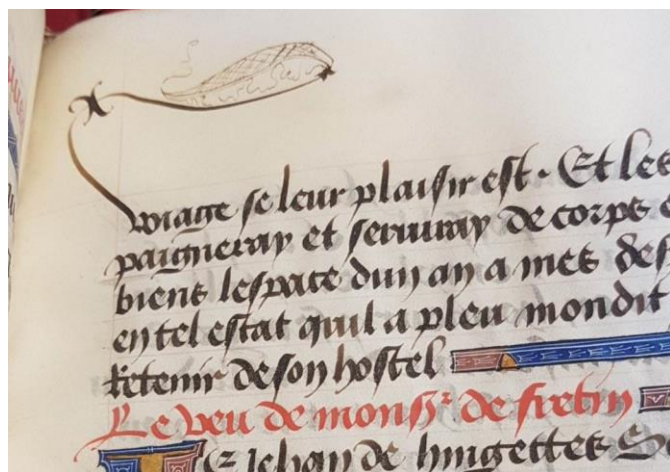 voiage se leur plaisir est · Et les
paigneray et seruiray de corps e
biens lespace dun an a mes des
en tel estat quil a pleu mondit
Retenir de son hostel
Le veu de monsr de fretin
Jehan de hingettes